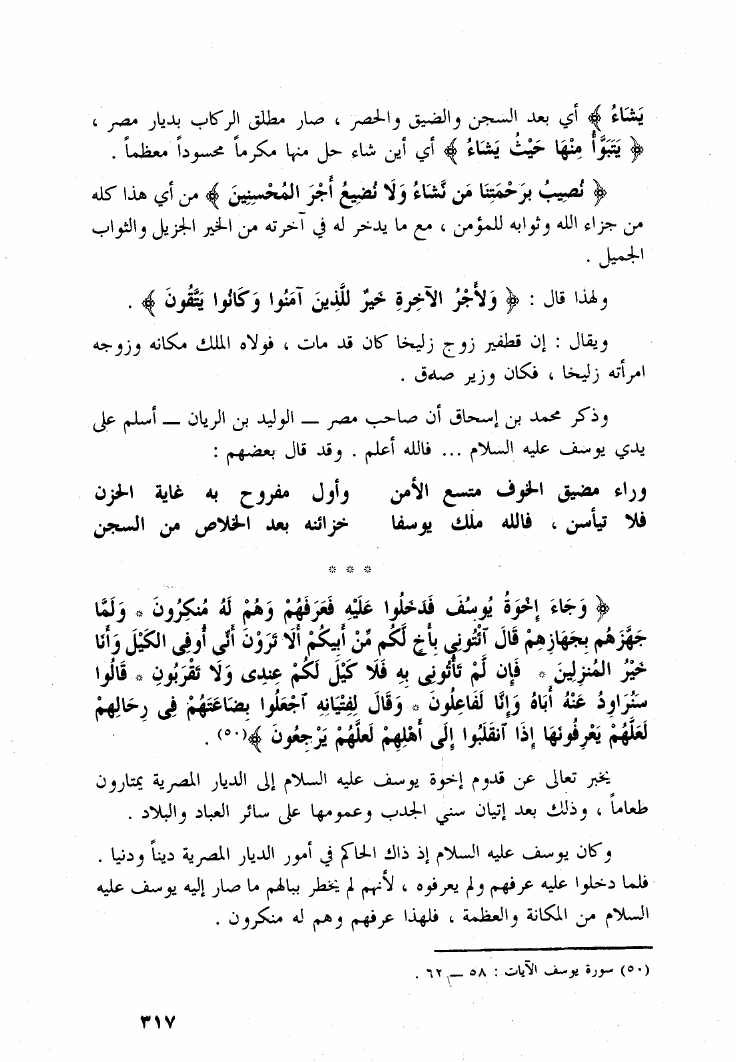 يَشَاءُ ﴾ أي بعد السجن والضيق والحصر ، صار مطلق الركاب بديار مصر ،
﴿ يَتَبَوَّأُ مِنْهَا حَيْثُ يَشَاءُ ﴾ أي أين شاء حل منها مكرماً محسوداً معظماً .
﴿ نُصِيبُ بِرَحْمَتِنَا مَن نَّشَاءُ وَلَا نُضِيعُ أَجْرَ المُحْسِنِينَ ﴾ من أي هذا كله
من جزاء الله وثوابه للمؤمن ، مع ما يدخر له في آخرته من الخير الجزيل والثواب
الجميل .
ولهذا قال : ﴿ وَلَأَجْرُ الآخِرةِ خَيرٌ للَّذِينَ آمَنُوا وَكَانُوا يَتَّقُونَ ﴾ .
ويقال : إن قطفير زوج زليخا كان قد مات ، فولاه الملك مكانه وزوجه
امرأته زليخا ، فكان وزير صدق .
وذكر محمد بن إسحاق أن صاحب مصر – الوليد بن الريان – أسلم على
يدي يوسف عليه السلام ... فالله أعلم . وقد قال بعضهم :
وراء مضيق الخوف متسع الأمن وأول مفروح به غاية الحزن
فلا تيأسن ، فالله ملك يوسفا خزائنه بعد الخلاص من السجن
* * *
﴿ وَجَاءَ إِخْوَةُ يُوسُفَ فَدَخَلُوا عَلَيْهِ فَعَرَفَهُمْ وَهُمْ لَهُ مُنكِرُونَ * وَلَمَّا
جَهَّزَهُم بِجَهَازِهِمْ قَالَ ٱئْتُونِي بِأَخٍ لَّكُم مِّنْ أَبِيكُمْ أَلَا تَرَوْنَ أَنِّي أُوفِي الكَيْلَ وَأَنَا
خَيْرُ المُنزِلِينَ * فَإِن لَّمْ تَأْتُونِي بِهِ فَلَا كَيْلَ لَكُمْ عِندِى وَلَا تَقْرَبُونِ * قَالُوا
سَنُرَاوِدُ عَنْهُ أَبَاهُ وَإِنَّا لَفَاعِلُونَ * وَقَالَ لِفِتْيَانِهِ ٱجْعَلُوا بِضَاعَتَهُمْ فِي رِحَالِهِمْ
لَعَلَّهُمْ يَعْرِفُونَهَا إِذَا ٱنقَلَبُوا إِلَى أَهْلِهِمْ لَعلَّهُمْ يَرْجِعُونَ ﴾(٥٠) .
يخبر تعالى عن قدوم إخوة يوسف عليه السلام إلى الديار المصرية يمتارون
طعاماً ، وذلك بعد إتيان سني الجدب وعمومها على سائر العباد والبلاد .
وكان يوسف عليه السلام إذ ذاك الحاكم في أمور الديار المصرية ديناً ودنيا .
فلما دخلوا عليه عرفهم ولم يعرفوه ، لأنهم لم يخطر ببالهم ما صار إليه يوسف عليه
السلام من المكانة والعظمة ، فلهذا عرفهم وهم له منكرون .
(٥٠) سورة يوسف الآيات : ٥٨ – ٦٢ .
٣١٧